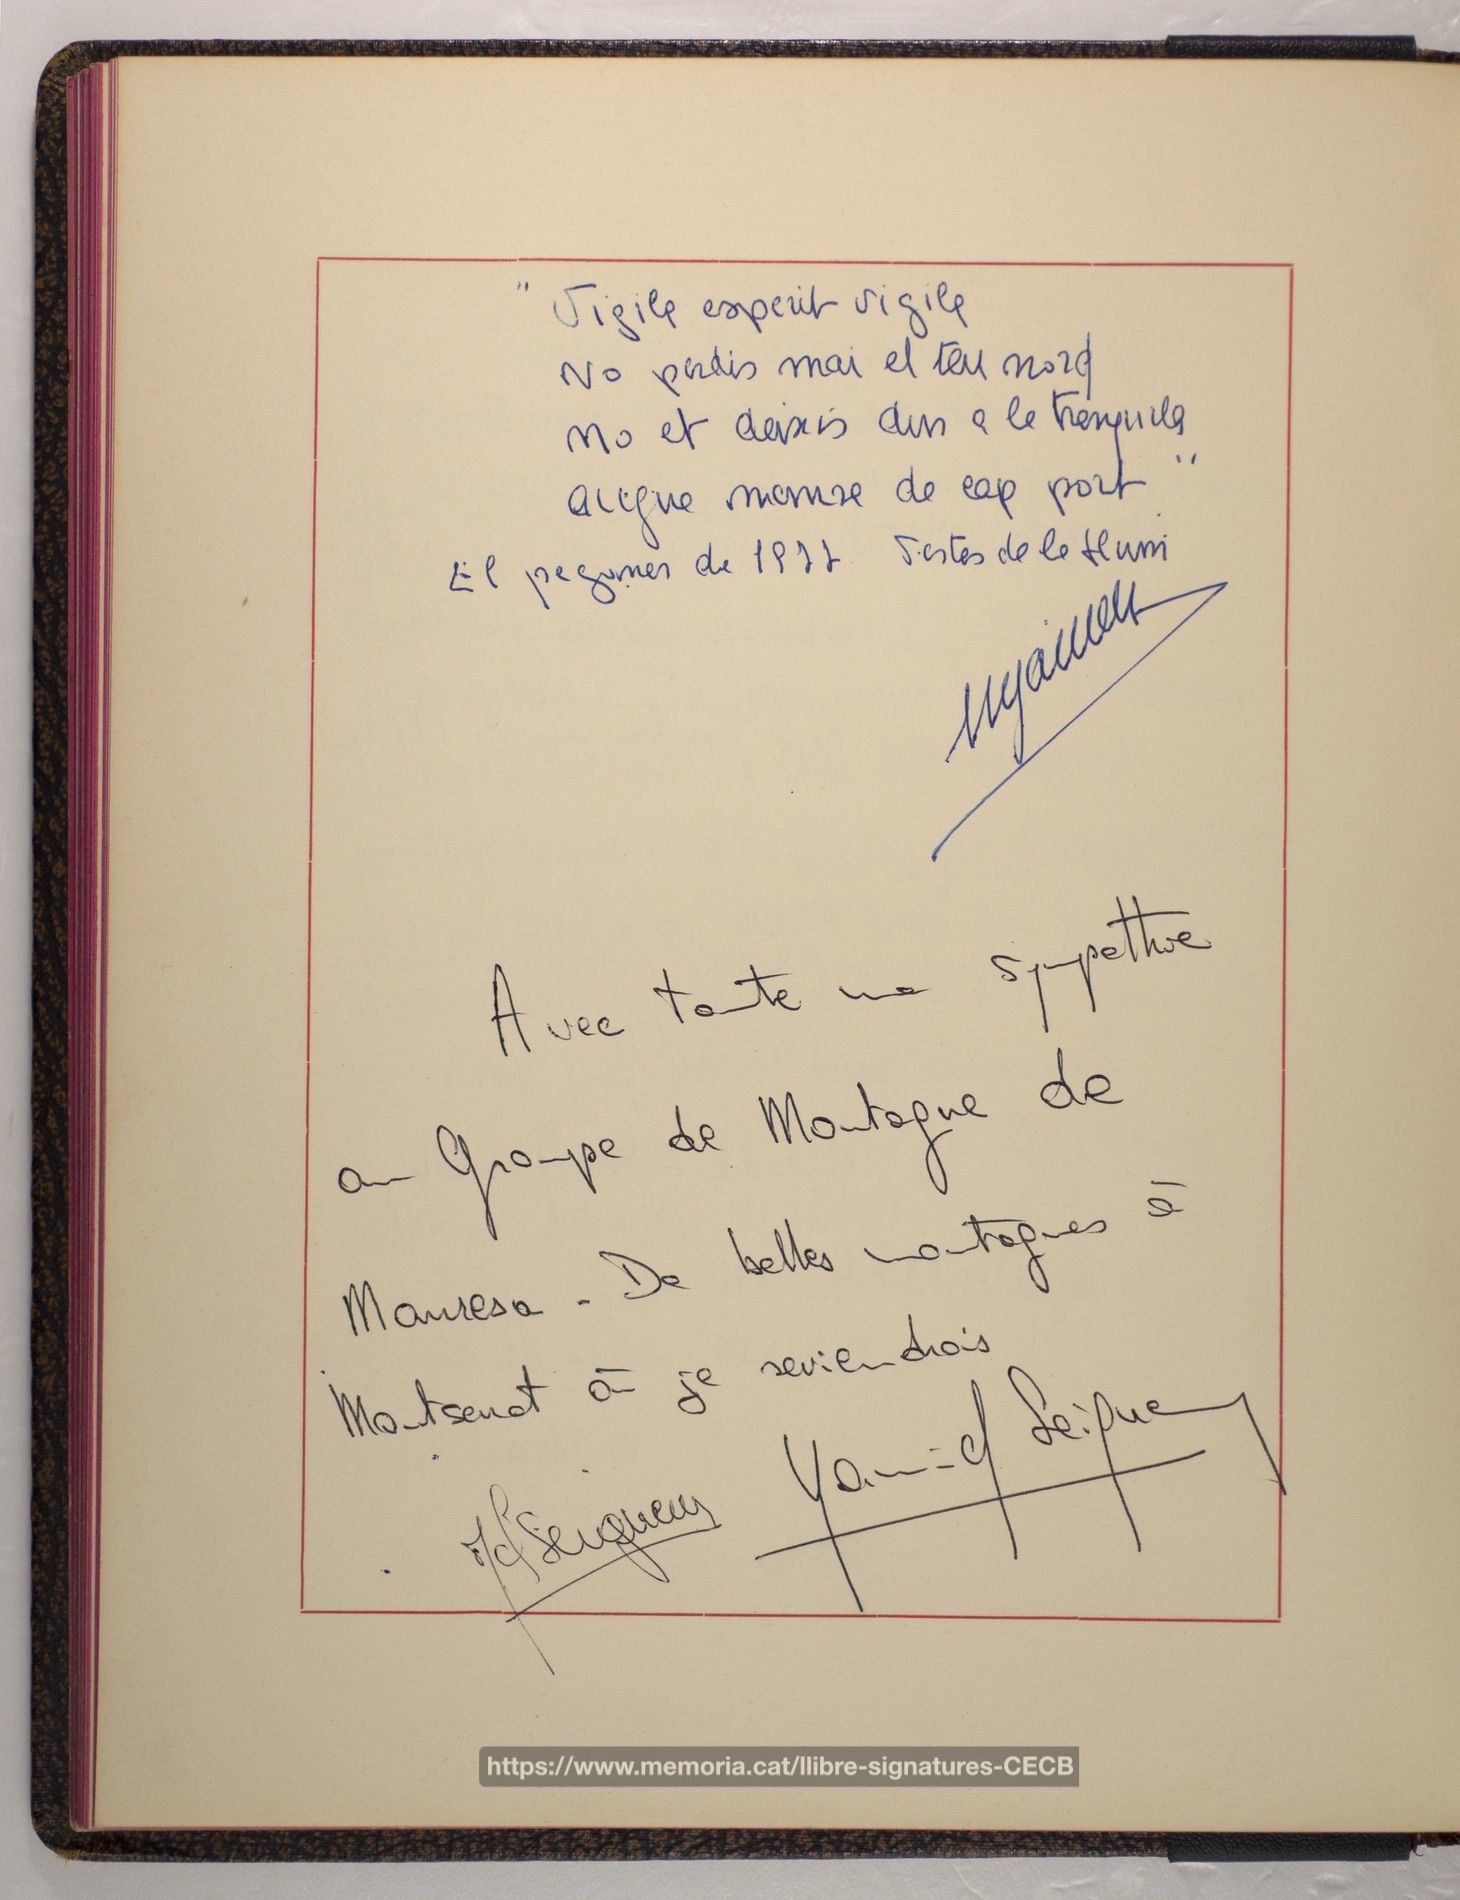 " Vigila esperit vigila
No perdis mai el teu nord
No et deixis dur a la tranquila
aigua mansa de cap port "
El pregoner de 1977 Festes de la Llum
Avec toute ma sympathie
au Groupe de Montagne de
Manresa - De belles montagnes à
Montserrat où je reviendrais
Yannick Seigneur
Seigneur
https://www.memoria.cat/llibre-signatures-CECB